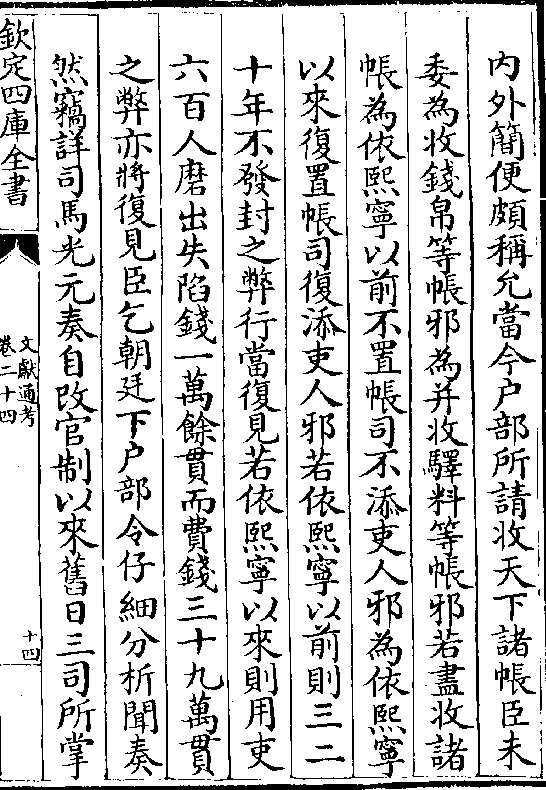 內外簡便頗稱允當今户部所請收天下諸帳臣未
委為收錢帛等帳邪為并收驛料等帳邪若盡收諸
帳為依熙寧以前不置帳司不添吏人邪為依熙寧
以來復置帳司復添吏人邪若依熙寧以前則三二
十年不發封之弊行當復見若依熙寧以來則用吏
六百人磨出失陷錢一萬餘貫而費錢三十九萬貫
之弊亦將復見臣乞朝廷下户部令仔細分析聞奏
然竊詳司馬光元奏自改官制以來舊日三司所掌
欽定四庫全書
文獻通考
卷二十四
十四